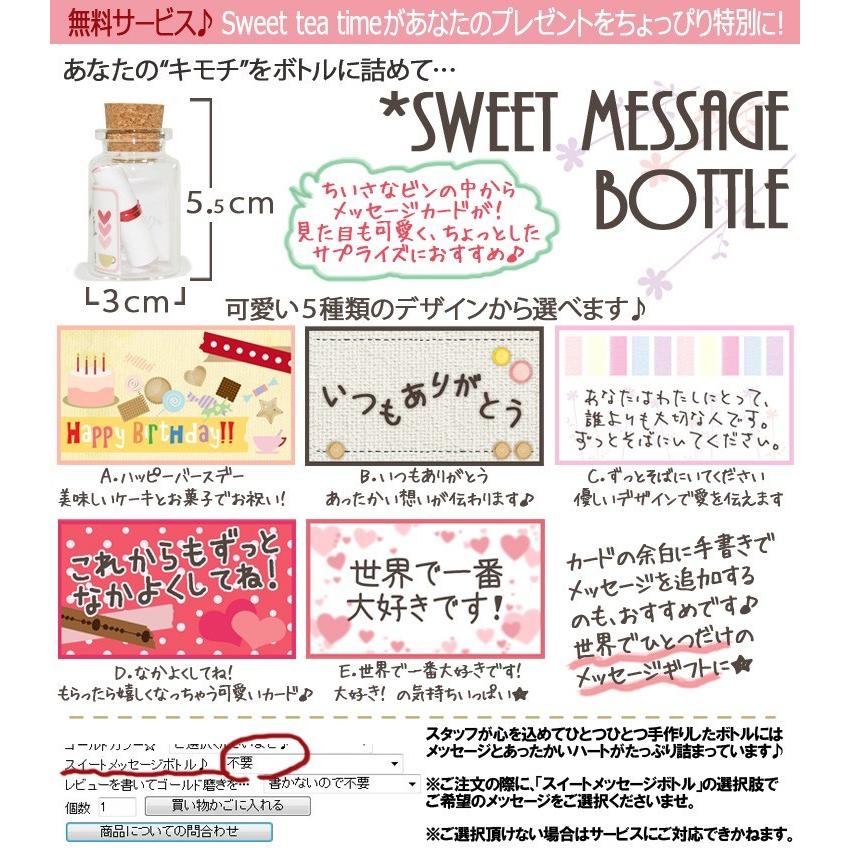 無料サービス♪ Sweet tea timeがあなたのプレゼントをちょっぴり特別に!
あなたの“キモチ”をボトルに詰めて…
*SWEET MESSAGE
BOTTLE
5.5cm
3cm
ちいさなビンの中から
メッセージカードが!
見た目も可愛く、ちょっとした
サプライズにおすすめ♪
可愛い5種類のデザインから選べます♪
HAPPY BIRTHDAY!!
いつもありがとう
あなたはわたしにとって、
誰よりも大切な人です。
ずっとそばにいてください。
A.ハッピーバースデー
美味しいケーキとお菓子でお祝い!
B.いつもありがとう
あったかい想いが伝わります♪
C.ずっとそばにいてください
優しいデザインで愛を伝えます
これからもずっと
なかよくしてね!
世界で一番
大好きです!
カードの余白に手書きで
メッセージを追加する
のも、おすすめです♪
世界でひとつだけの
メッセージギフトに★
D.なかよくしてね!
もらったら嬉しくなっちゃう可愛いカード♪
E.世界で一番大好きです!
大好き! の気持ちいっぱい★
スイートメッセージボトル♪ 不要
レビューを書いてゴールド磨きを… 書かないので不要
個数 1 買い物かごに入れる
商品についての問合わせ
スタッフが心を込めてひとつひとつ手作りしたボトルには
メッセージとあったかいハートがたっぷり詰まっています♪
※ご注文の際に、「スイートメッセージボトル」の選択肢で
ご希望のメッセージをご選択くださいませ。
※ご選択頂けない場合はサービスにご対応できかねます。